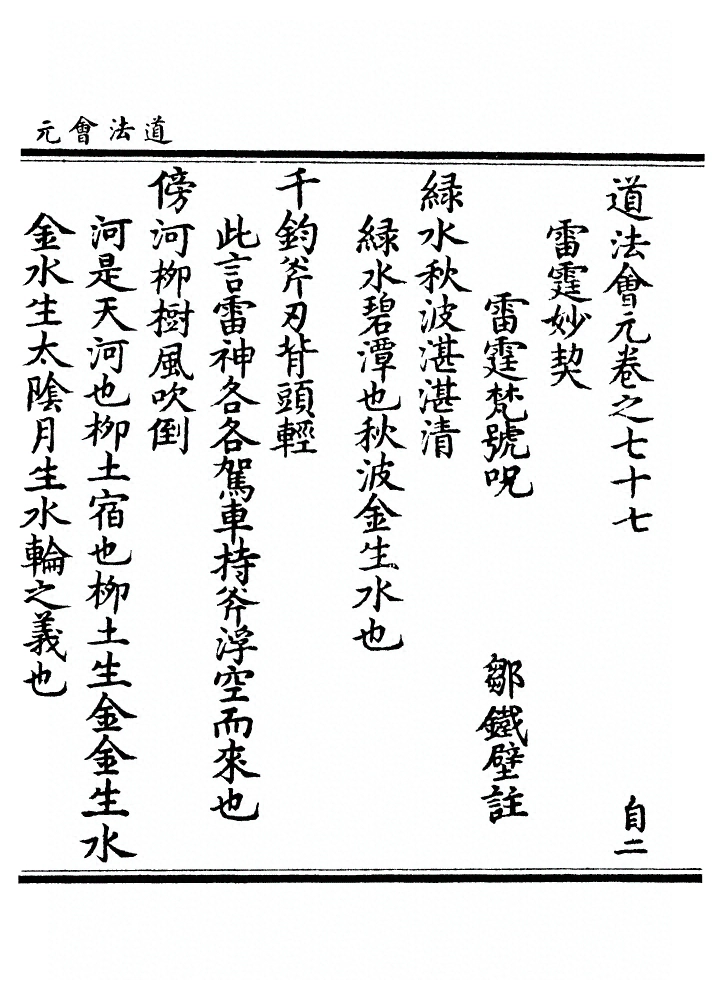 道法會元
道法會元卷之七十七
自二
雷霆妙契
雷霆梵號呪
鄒鐵壁註
緑水秋波湛湛清
緑水碧潭也秋波金生水也
千鈞斧刃背頭輕
此言雷神各各駕車持斧浮空而來也
傍河柳樹風吹倒
河是天河也柳土宿也柳土生金金生水
金水生太陰月生水輪之義也